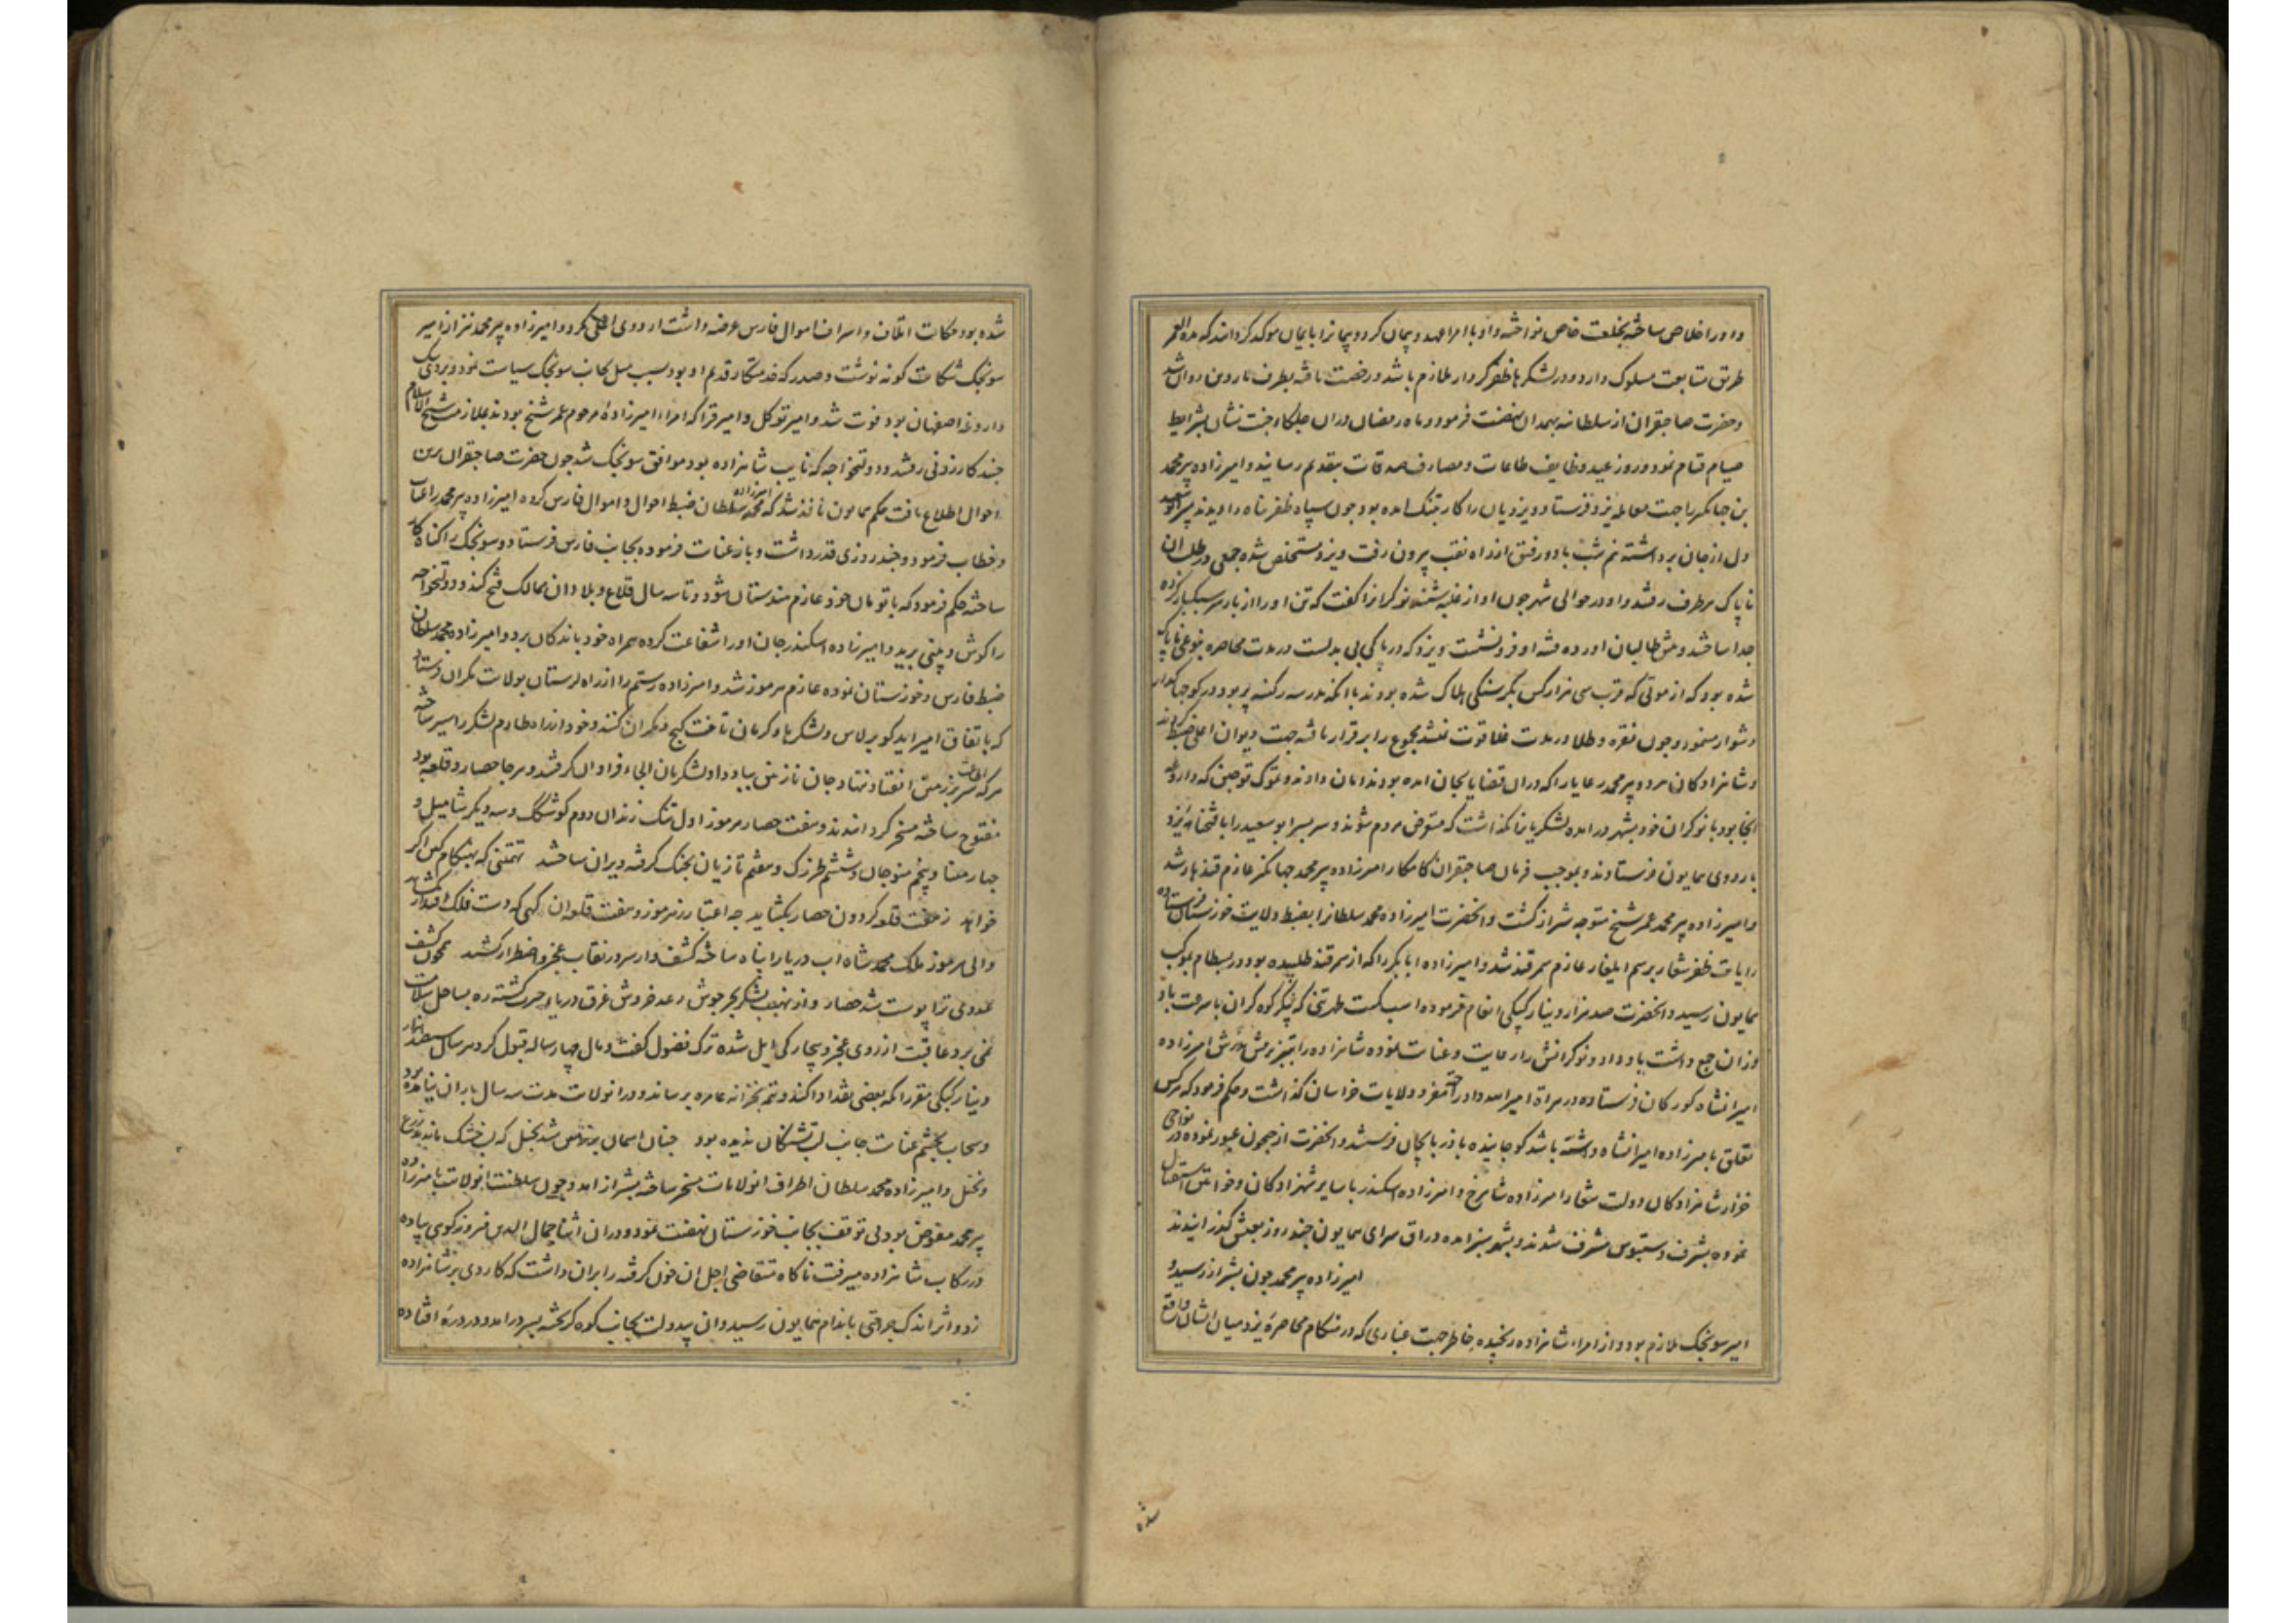 و او را خلاص ساخته بخلعت خاص نواخته و او با امرا عهد و پیمان کرد و پیمانرا بایمان موکد کردانید که مدة العمر
طریق متابعت مسلوک دارد و در لشکرها ظفر کردار ملازم باشد و رخصت یافته بطرف ماروین روان شد
و حضرت صاحبقران از سلطانیه بهمدان نهضت فرمود و ماه رمضان دران جلکاء جنت نشان بشرایط
صیام قیام نمود و روز عید وظایف طاعات و مصارف صدقات بتقدیم رسانید و امیرزاده پیر محمد
بن جهانکیر را جهت معامله یزد فرستاد و یزدیان را کار بتنک امده بود چون سپاه ظفر پناه را دیدند پسر ابو سعید
دل از جان برداشته نیم شب با دو رفیق از راه نقب بیرون رفت و یزد مستخلص شده جمعی در طلب ان
ناپاک هر طرف رفتند و او در حوالی شهر چون اواز غلبه شنید نوکرانرا کفت که تن او را از بار سر سبکبار کرده
جدا ساختند و پیش طالبان اورده فتنه او فرو نشست و یزد که در پاکی بی بدلست در مدت محاصره بنوعی ناپاک
شده بود که از موتی که قرب سی هزار کس بکرسنکی هلاک شده بودند با انکه مدرسه رکنیه پر بود در کوچها کذار
دشوار مینمود و چون نقره و طلا در مدت غلا قوت نشد مجموع را برقرار یافته جهت دیوان اعلی ضبط کردند
و شاهزادکان هر دو پیر محمد رعایا را که دران قضایا بجان امده بودند امان دادند و تموک قوچین که داروغه
انجا بود با نوکران خود بشهر درامده لشکریانرا نکذاشت که متعرض مردم شوند و سر پسر ابو سعید را با فتحنامه یزد
باردوی همایون فرستادند و بموجب فرمان صاحبقران کامکار امیرزاده پیر محمد جهانکیر عازم قندهار شد
و امیرزاده پیر محمد عمر شیخ متوجه شیراز کشت و انحضرت امیرزاده محمد سلطانرا بضبط ولایت خوزستان فرستاده
رایات ظفر شعار برسم ایلغار عازم سمرقند شد و امیرزاده ابابکر را که از سمرقند طلبیده بود در بسطام بموکب
همایون رسید و انحضرت صد هزار دینار کپکی انعام فرموده اسب کمیت طهرتنی که پیکر کوه کران با سرعت باد
وزان جمع داشت باو داد و نوکرانش را رعایت و عنایت نموده شاهزاده را بتبریز پیش پدرش امیرزاده
امیرانشاه کورکان فرستاده در هراة امیر الله داد را جهت مغز و ولایات خراسان کذاشت و حکم فرمود که هر کس
تعلق بامیرزاده امیرانشاه داشته باشد کوچانیده باذربایجان فرستند و انحضرت از جیحون عبور نموده در نواحی
خزار شاهزادکان دولت شعار امیرزاده شاهرخ و امیرزاده اسکندر با سایر شهزادکان و خواتین استقبال
نموده بشرف دستبوس مشرف شدند و بشهر سبز امده در اق سرای همایون چند روز بعیش کذرانیدند
امیرزاده پیر محمد چون بشیراز رسید و
امیر سونجک ملازم بود و از امراء شاهزاده رنجیده خاطر جهت غباری که در هنکام محاصره یزد میان ایشان واقع
شده
شده بود حکایت اتلاف و اسراف اموال فارس عرضه داشت اردوی اعلی کرد و امیرزاده پیر محمد نیز از امیر
سونجک شکایت کونه نوشت و صدر که خدمتکار قدیم او بود بسبب میل بجانب سونجک سیاست نمود و بردی بیک
داروغه اصفهان بود فوت شد و امیر توکل و امیر قرا که امراء امیرزاده مرحوم عمر شیخ بودند بملازمت شیخ الاسلام
جنید کازرونی رفتند و دولتخواجه که نایب شاهزاده بود موافق سونجک شد چون حضرت صاحبقران برین
احوال اطلاع یافت حکم همایون نافذ شد که امیرزاده محمد سلطان ضبط احوال و اموال فارس کرده امیرزاده پیر محمد را عتاب
و خطاب فرمود و چند روزی قدر داشت و باز عنایت فرموده بجانب فارس فرستاد و سونجک را کناه کار
ساخته حکم فرمود که با تومان خود عازم هندوستان شود و تا سه سال قلاع و بلاد ان ممالک فتح کند و دولتخواجه
را کوش و بینی برید و امیرزاده اسکندر جان او را شفاعت کرده همراه خود باندکان برد و امیرزاده محمد سلطان
ضبط فارس و خوزستان نموده عازم هرموز شد و امیرزاده رستم را از راه لرستان بولایت مکران فرستاد
که باتفاق امیر ایدکو برلاس و لشکرهاء کرمان تاخت کیج و مکران کنند و خود از راه طارم لشکر را سیر ساخته
هرکه سر بر زمین اطاعت ننهاد جان نازنین بباد داد و لشکریان الجاء فراوان کرفتند و هر جا حصار و قلعه بود
مفتوح ساخته مسخر کردانیدند و هفت حصار هرموز اول تنک زندان دوم کوشکک و سه دیکر شامیل و
چهار مینا و پنجم منوجان و ششم طرزک و هفتم تازیان بجنک کرفته ویران ساختند تهمتنی که بهنکام کین اکر
خواهد ز هفت قلعه کردون حصار بکشاید چه اعتبار ز هرموز و هفت قلعه ان کسی که دست فلک اقتدار بکشاید
والی هرموز ملک محمد شاه اب دریا را پناه ساخته کشف وار سر در نقاب عجز و اضطرار کشید همچون کشف
عدوی ترا پوست شد حصار و از نهیب لشکر بحر جوش رعد خروش غرق دریاء حیرت کشته ره بساحل سلامت
نمی برد عاقبت از روی عجز و بیچارکی ایل شده ترک فضول کفت و مال چهار ساله قبول کرد هر سال سیصد هزار
دینار کپکی مقررا که بعضی نقد ادا کند و تتمه بخزانه عامره برساند و در انولایت مدت سه سال باران نیامده بود
و سحاب بچشم عنایت جانب لب تشنکان ندیده بود چنان اسمان بر زمین شد بخیل که لب خشک ماندند زرع
و نخیل و امیرزاده محمد سلطان اطراف انولایات مسخر ساخته بشیراز امد و چون سلطنت انولایت بامیرزاده
پیر محمد مفوض بود بی توقف بجانب خوزستان نهضت نمود و دران اثنا جمال الدین فیروزکوهی پیاده
در رکاب شاهزاده میرفت ناکاه متقاضی اجل ان خون کرفته را بران داشت که کاردی بر شاهزاده
زد و اثر اندک جراحتی باندام همایون رسید و ان بیدولت بجانب کوه کریخته بسر درامد و در دره افتاده